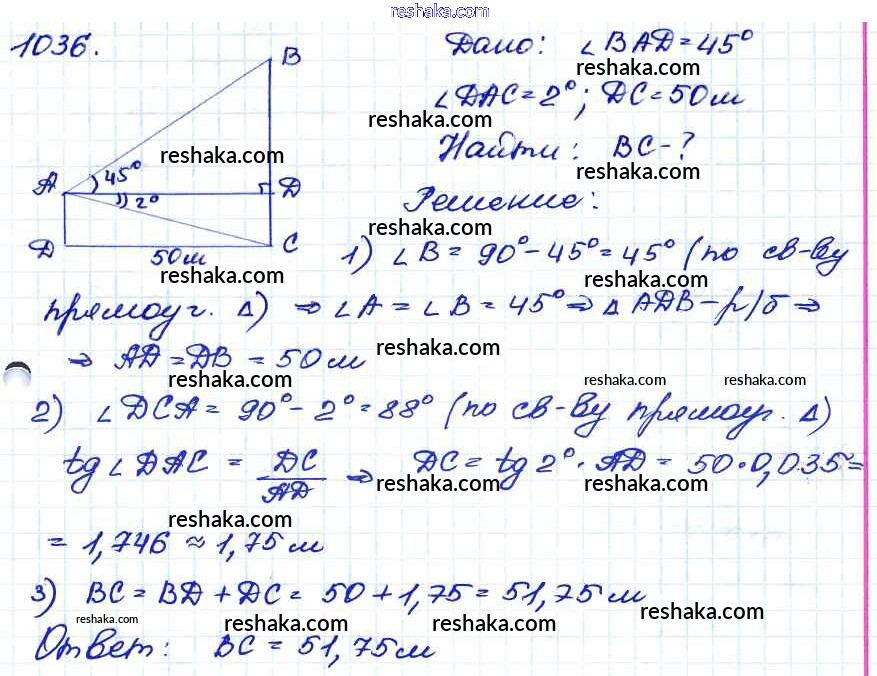 reshaka.com
1036.
B
Дано: ∠BAD=45°
reshaka.com
∠DAC=2°; DC=50м
reshaka.com
reshaka.com
Найти: BC-?
reshaka.com
A 45° D
2°
Решение:
reshaka.com
D 50м C
reshaka.com
1) ∠B = 90°-45°=45° (по св-ву
reshaka.com
прямоуг. Δ) ⇒ ∠A = ∠B = 45° ⇒ Δ ADB - р/б ⇒
⇒ AD = DB = 50 м
reshaka.com
reshaka.com
reshaka.com reshaka.com
2) ∠DCA = 90°-2°=88° (по св-ву прямоуг. Δ)
tg ∠DAC = DC/AD ⇒ DC = tg 2° · AD = 50·0,035 =
reshaka.com reshaka.com
= 1,746 ≈ 1,75 м
reshaka.com
3) BC = BD + DC = 50 + 1,75 = 51,75 м
reshaka.com reshaka.com reshaka.com reshaka.com
Ответ: BC = 51,75 м